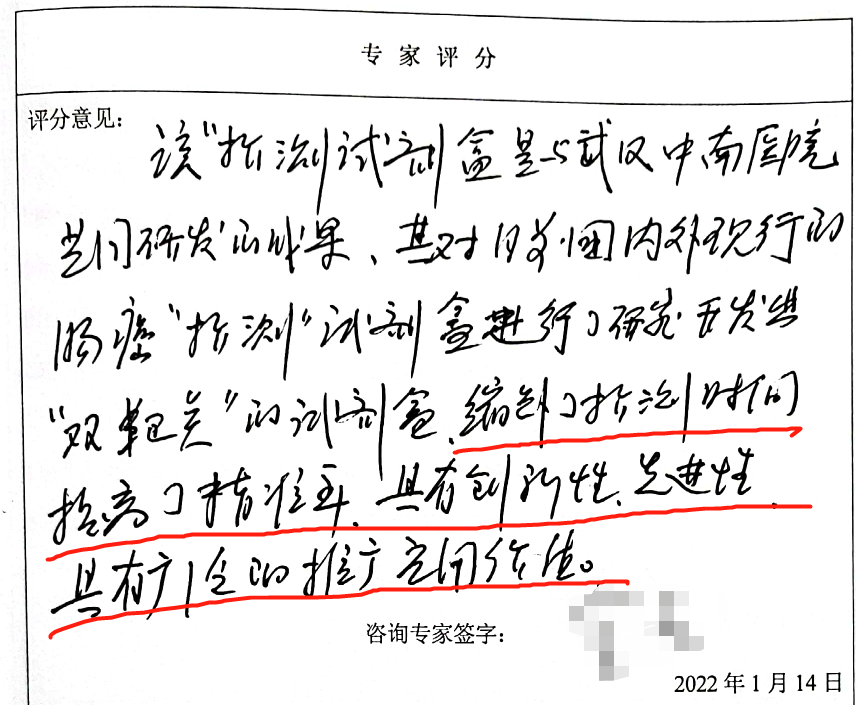 专家评分
评分意见：
该"检测试剂盒是与武汉中南医院
共同研发的成果、其对目前国内外现行的
肠癌"检测"试剂盒进行了研究开发出
"双靶关"的试剂盒、缩短了检测时间
提高了精准率、具有创新性、先进性、
具有广的推广应用价值。
咨询专家签字：
2022年1月14日